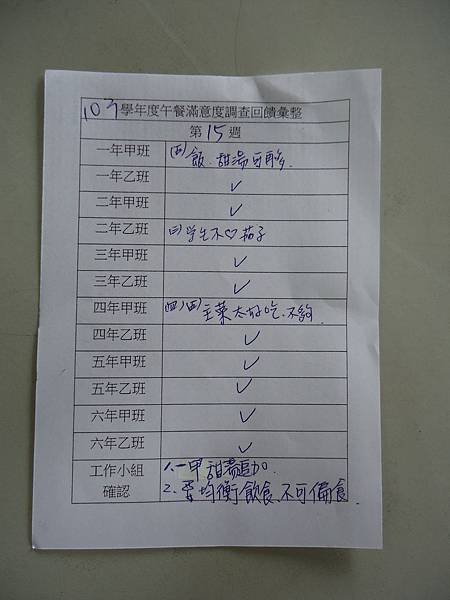 107學年度午餐滿意度調查回饋彙整
第15週
一年甲班 (四)飯、甜湯可再多.
一年乙班 ✓
二年甲班 ✓
二年乙班 (三)學生不♡茄子
三年甲班 ✓
三年乙班 ✓
四年甲班 (四)主菜太好吃、不夠.
四年乙班 ✓
五年甲班 ✓
五年乙班 ✓
六年甲班 ✓
六年乙班 ✓
工作小組 1.一甲甜湯追加.
確認 2.要均衡飲食、不可偏食.